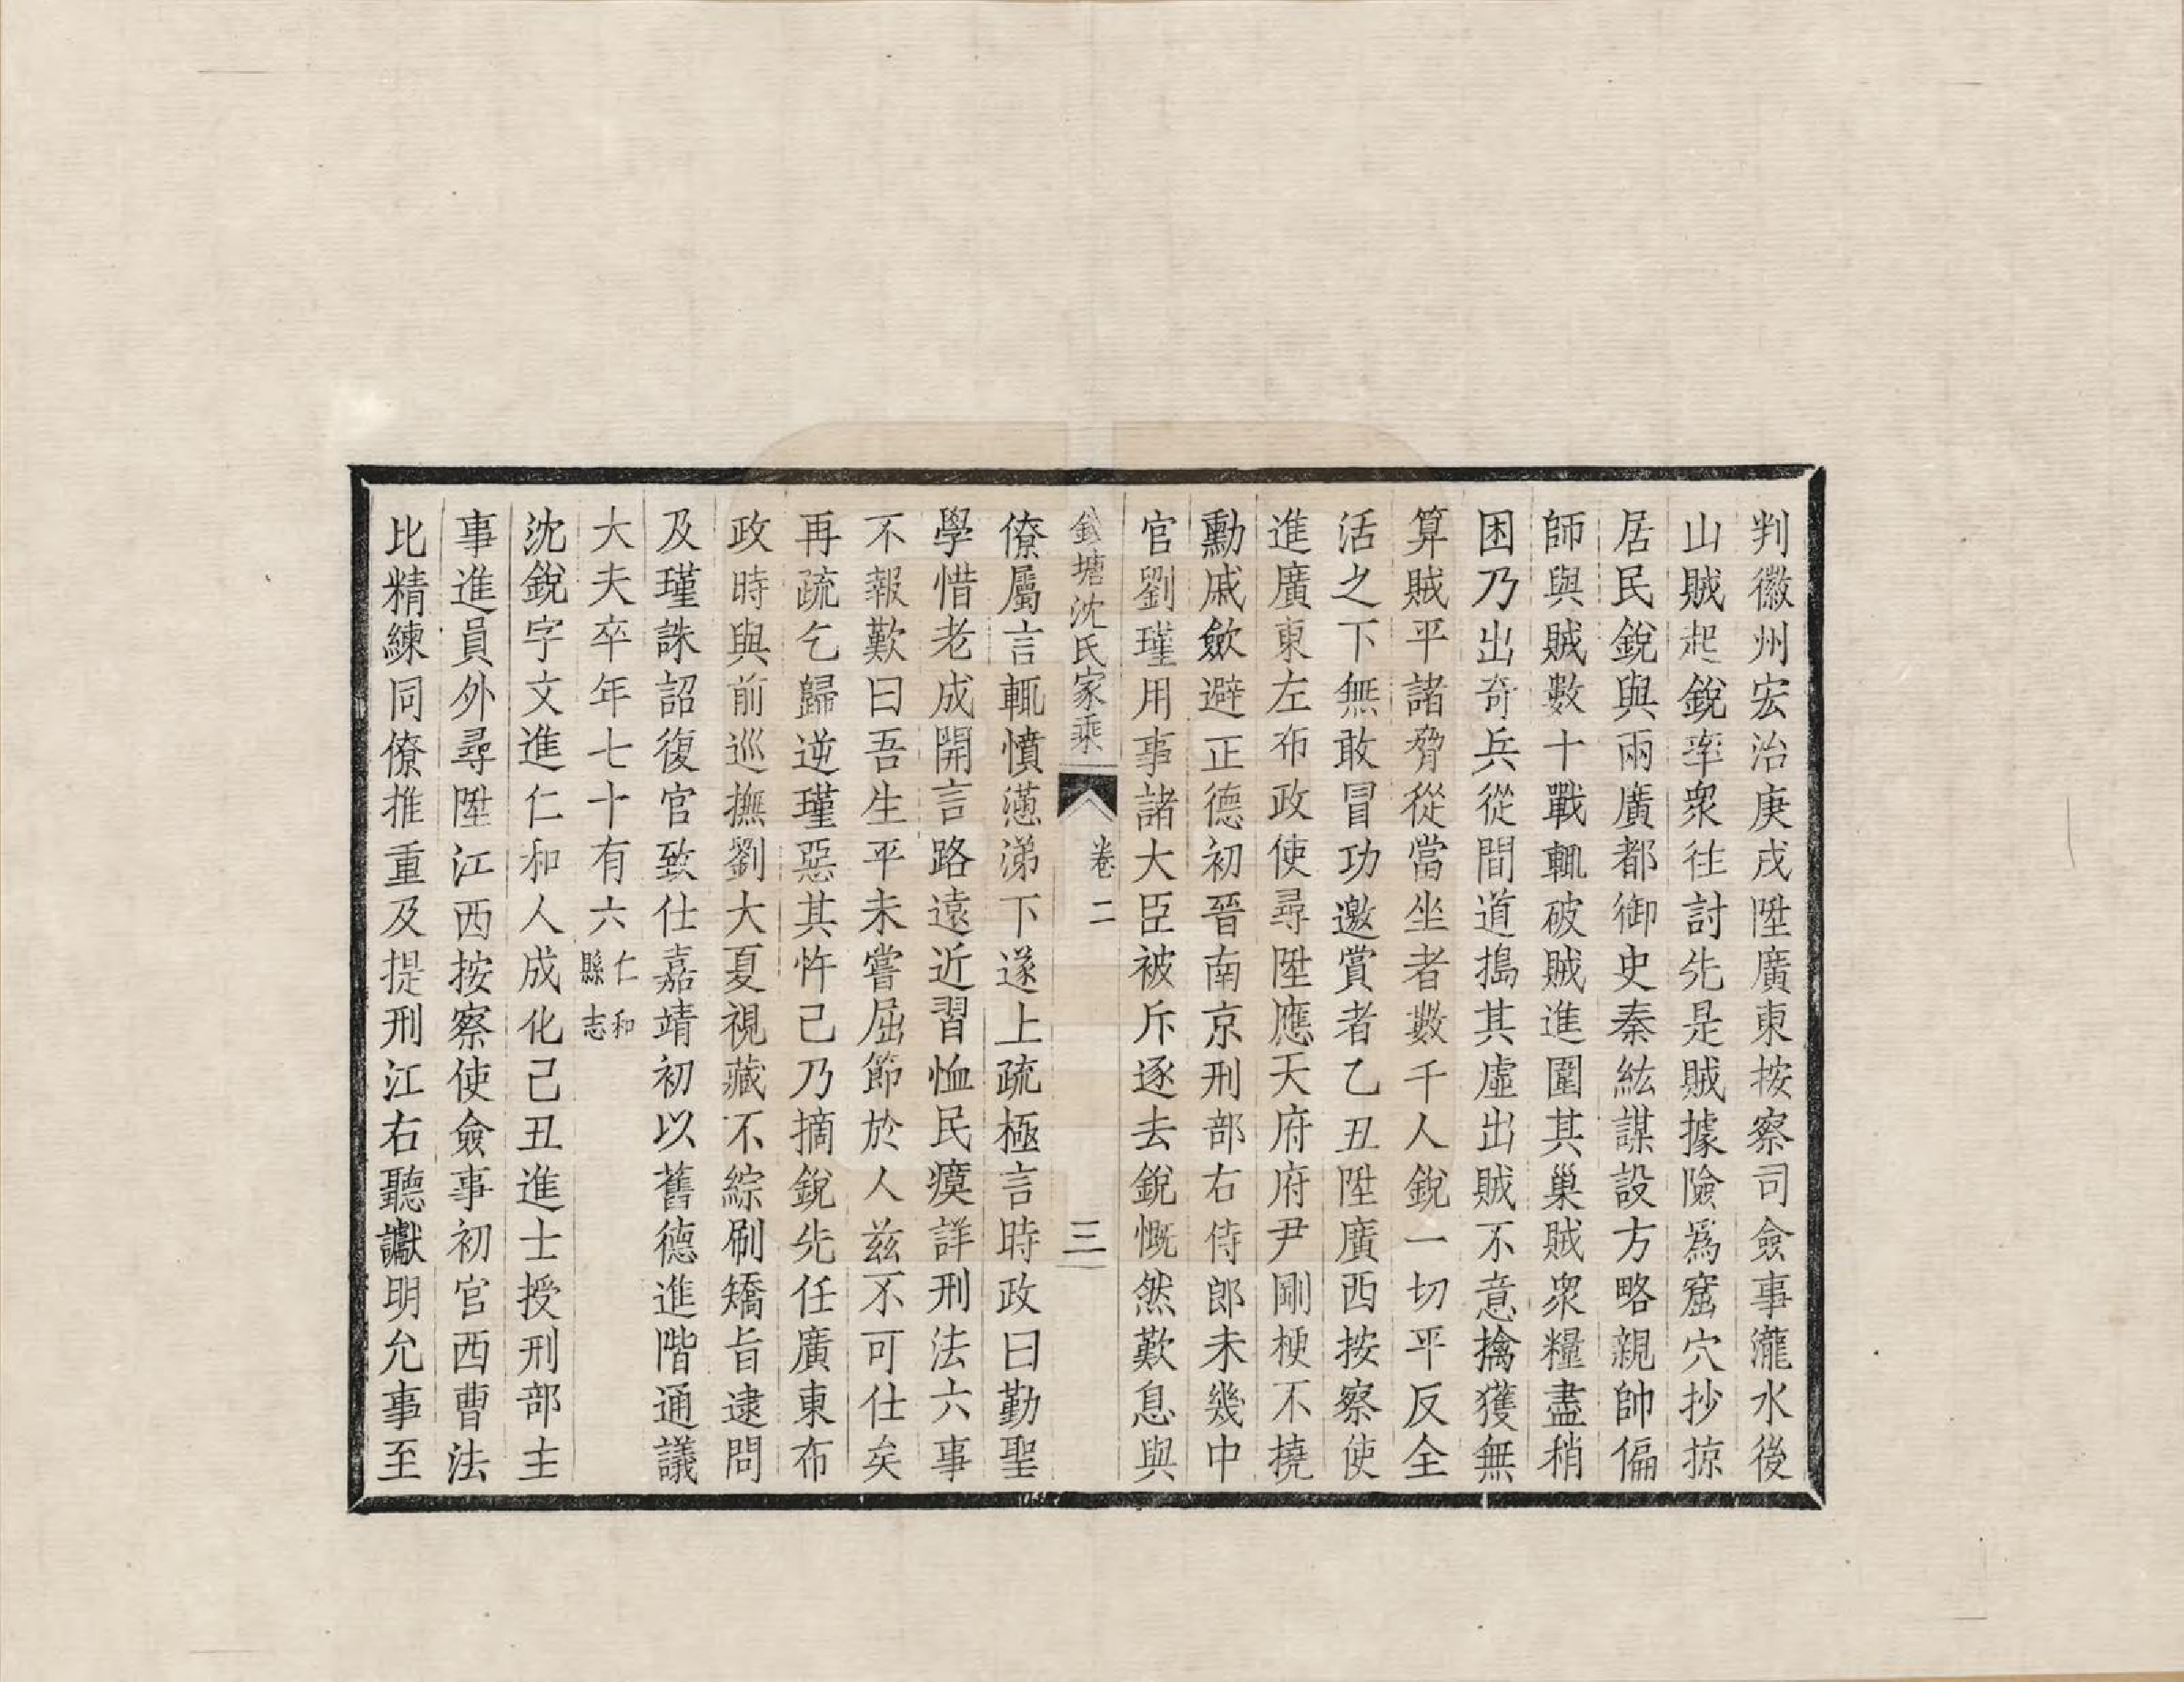 判徽州宏治庚戌陞廣東按察司僉事瀧水後
山賊起銳率衆往討先是賊據險爲窟穴抄掠
居民銳與兩廣都御史秦紘謀設方略親帥偏
師與賊數十戰輒破賊進圍其巢賊衆糧盡稍
困乃出奇兵從間道搗其虛出賊不意擒獲無
算賊平諸脅從當坐者數千人銳一切平反全
活之下無敢冒功邀賞者乙丑陞廣西按察使
進廣東左布政使尋陞應天府府尹剛梗不撓
勳戚斂避正德初晉南京刑部右侍郎未幾中
官劉瑾用事諸大臣被斥逐去銳慨然歎息與
錢塘沈氏家乘 卷二 三
僚屬言輒憤懣涕下遂上疏極言時政曰勤聖
學惜老成開言路遠近習恤民瘼詳刑法六事
不報歎曰吾生平未嘗屈節於人兹不可仕矣
再疏乞歸逆瑾惡其忤己乃摘銳先任廣東布
政時與前巡撫劉大夏視藏不綜刷矯旨逮問
及瑾誅詔復官致仕嘉靖初以舊德進階通議
大夫卒年七十有六仁和縣志
沈銳字文進仁和人成化己丑進士授刑部主
事進員外尋陞江西按察使僉事初官西曹法
比精練同僚推重及提刑江右聽讞明允事至